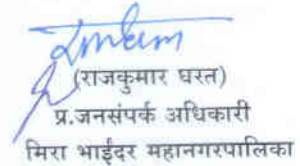 (राजकुमार घरत)
प्र.जनसंपर्क अधिकारी
मिरा भाईंदर महानगरपालिका